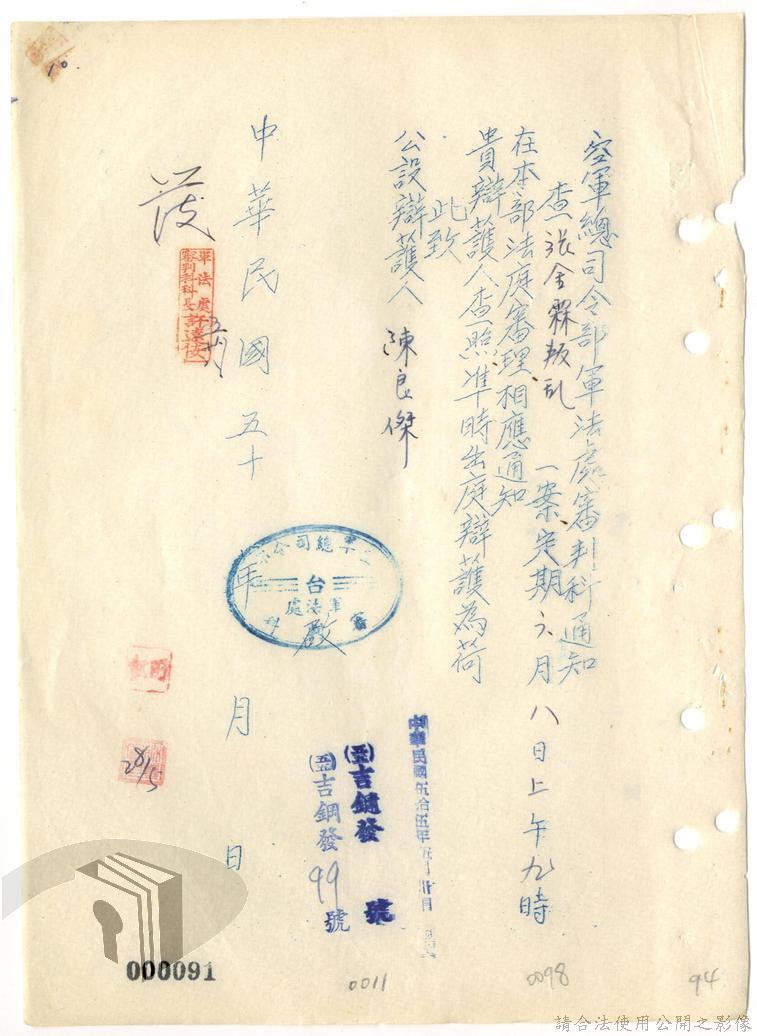 空軍總司令部軍法處審判科通知
查張金霖叛乱一案定期六月八日上午九時
在本部法庭審理相應通知
貴辯護人查照準時出庭辯護為荷
此致
公設辯護人 陳良傑
啟
中華民國五十 年 月 日
軍法處
審判科科長許遠俊
發
軍總司令
台
軍法處
審
中華民國伍拾伍年
吉鋼發 號
吉鋼發 99 號
28/5
10.
000091
0011
0098
94
請合法使用公開之影像